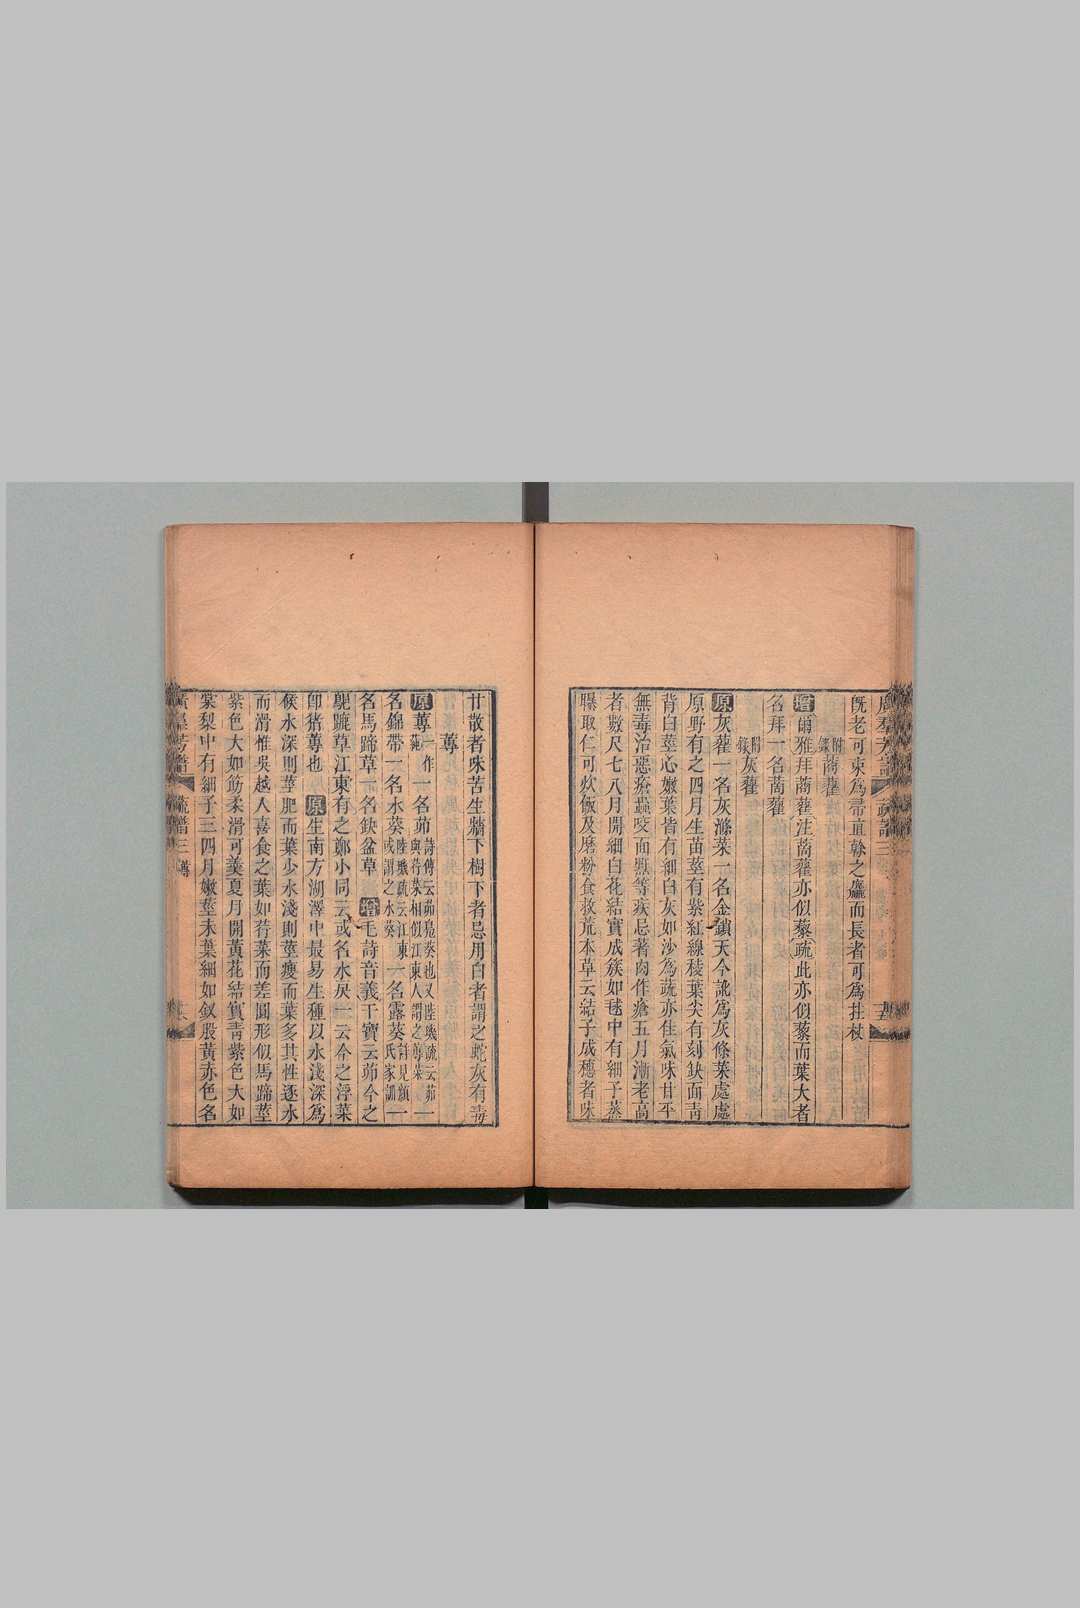 廣羣芳譜 蔬譜三
既老可束爲帚直榦之麤而長者可爲拄杖
附錄 蔏藋
增爾雅拜蔏藋注蔏藋亦似藜疏此亦似藜而葉大者
名拜一名蔏藋
附錄 灰藋
原灰藋一名灰滌菜一名金鎖天今訛爲灰條菜處處
原野有之四月生苗莖有紫紅線稜葉尖有刻缺面青
背白莖心嫩葉皆有細白灰如沙爲蔬亦佳氣味甘平
無毒治惡瘡蟲咬面䵟等疾忌著肉作瘡五月漸老高
者數尺七八月開細白花結實成簇如毬中有細子蒸
曝取仁可炊飯及磨粉食救荒本草云結子成穗者味
甘散者味苦生牆下樹下者忌用白者謂之蛇灰有毒
蓴
原蓴一作蒓一名茆詩傳云茆鳧葵也又陸璣疏云茆與荇菜相似江東人謂之蓴菜一
名錦帶一名水葵陸璣疏云江東或謂之水葵一名露葵詳見顏氏家訓一
名馬蹄草一名缺盆草 增毛詩音義干寶云茆今之
䴙蹏草江東有之鄭小同云或名水戾一云今之浮菜
卽猪蓴也 原生南方湖澤中最易生種以水淺深爲
候水深則莖肥而葉少水淺則莖瘦而葉多其性逐水
而滑惟吳越人喜食之葉如荇菜而差圓形似馬蹄莖
紫色大如筯柔滑可羹夏月開黃花結實青紫色大如
棠梨中有細子三四月嫩莖未葉細如釵股黃赤色名
廣羣芳譜 蔬譜三 蓴